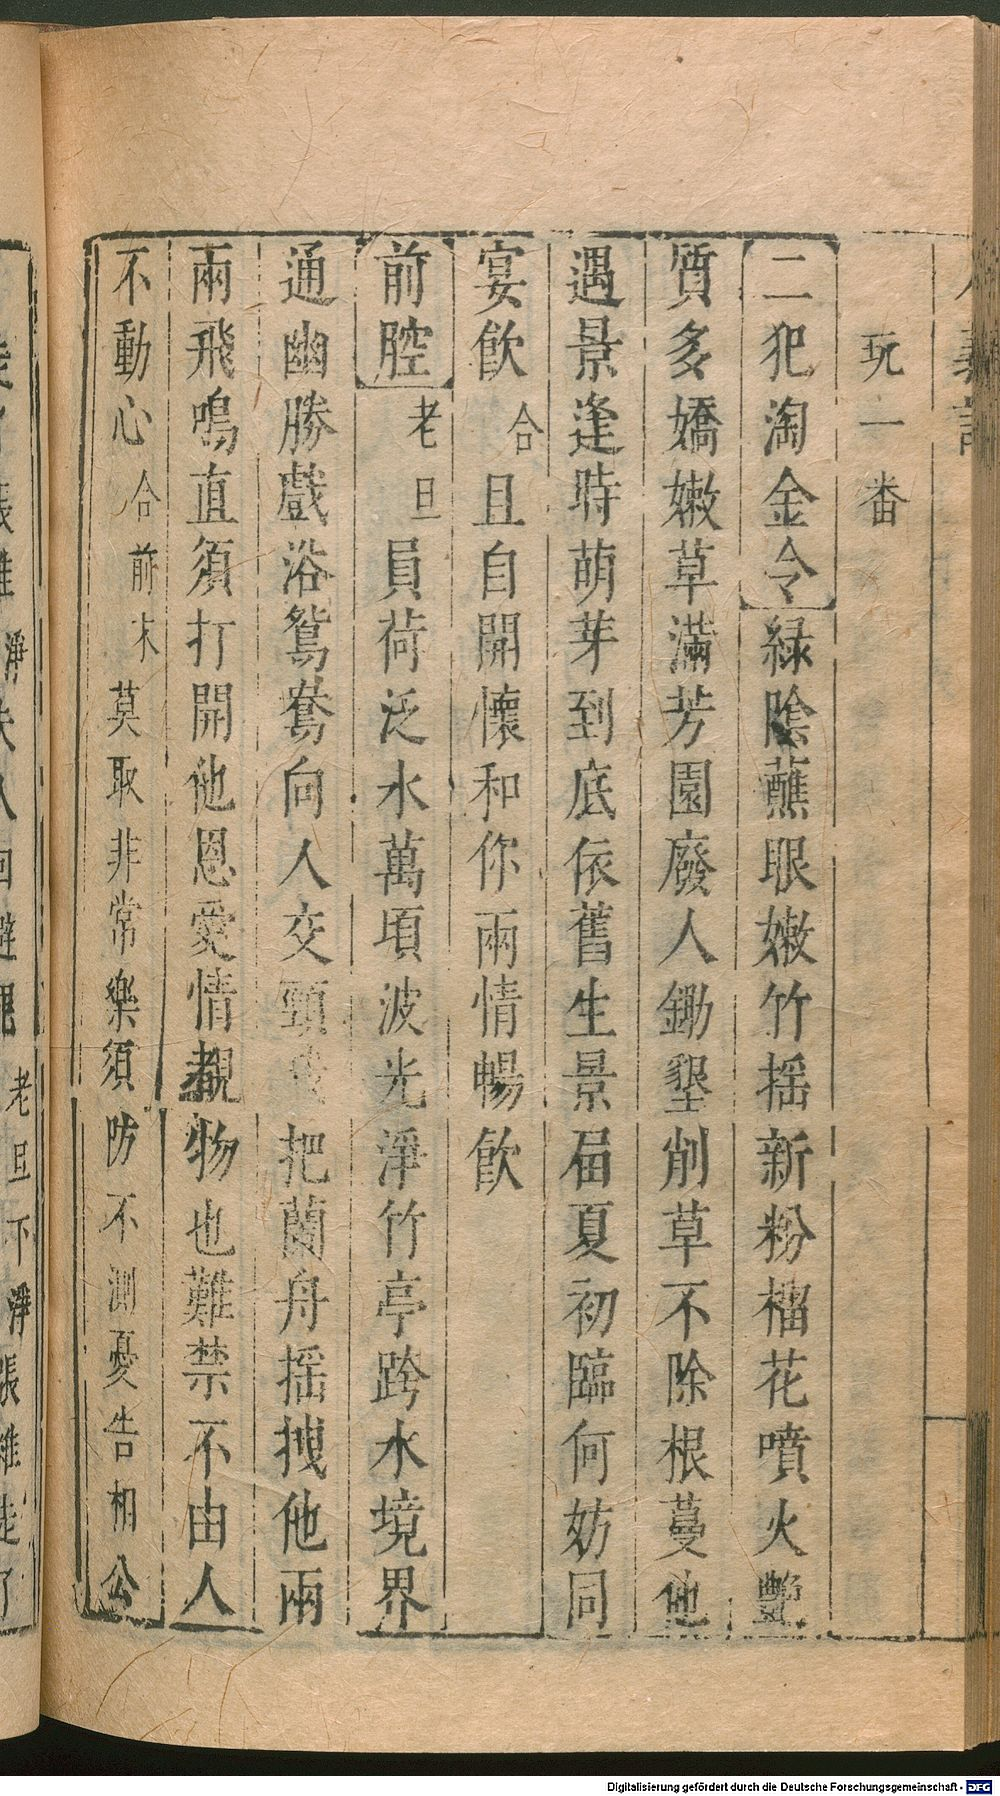 玩一番
二犯淘金令綠陰蘸眼嫩竹揺新粉榴花噴火艷
質多嬌嫩草滿芳園廢人鋤墾削草不除根蔓他
遇景逢時萌芽到底依舊生景屆夏初臨何妨同
宴飲合且自開懷和你兩情暢飲
前腔老旦員荷泛水萬頃波光淨竹亭跨水境界
通幽勝戲浴鴛鴦向人交頸把蘭舟揺拽他兩
兩飛鳴直須打開他恩愛情覩物也難禁不由人
不動心合前末莫取非常樂須防不測憂告相公
老旦下淨張雖走了
Digitalisierung gefördert durch die Deutsche Forschungsgemeinschaft - DFG